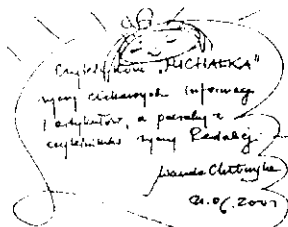 Czytelnikom "MICHAŁKA"
życzę ciekawych informacji
i artykułów, a
czytelników życzę Redakcji
Wanda Chotomska
21.06.2001